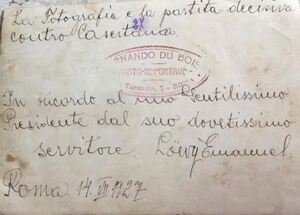 La Fotografia e la partita decisiva
contro Casertana.
RNANDO DU BOIS
PHOTO-REPORTAGE
In ricordo al mio Gentilissimo
Presidente dal suo dovetissimo
servitore Loëvy Emanuel.
Roma 14.VII.1927